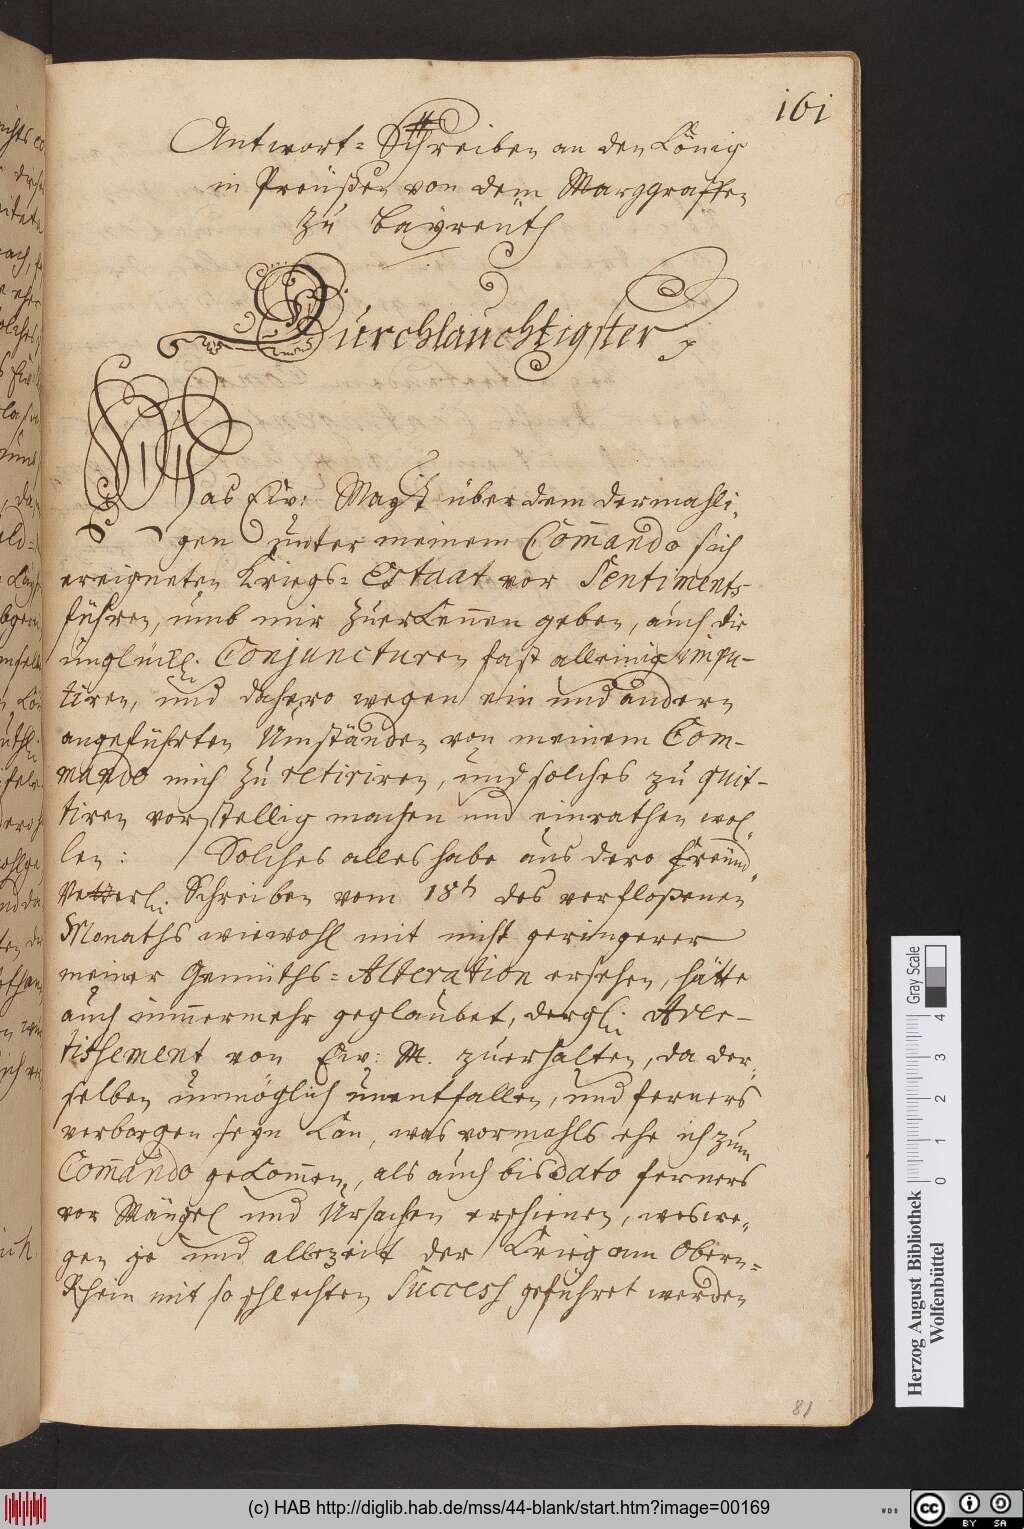 161
Antwort=Schreiben an den König
in Preüßen von dem Marggraffen
zu Bayreüth
Durchlauchtigster
Was Ew: Mayst über dem dermahli,
gen unter meinem Com̄ando sich
ereigneten Kriegs=Estaat vor Sentiments
führen, umb mir zuerkeñen geben, auch die
unglückl. Conjuncturen fast alleinig impu-
tiren, und dahero wegen ein und andern
angeführten Umständen von meinem Com-
mando mich zu retiriren, und solches zu quit-
tiren vorstellig machen und einrathen wol,
len: Solches alles habe aus dero freünd,
Vetterli. Schreiben vom 18t des verfloßenen
Monaths wiewohl mit nicht geringerer
meiner Gemüths=Alteration ersehen, hätte
auch im̄ermehr geglaubet, dergli. Aver-
tissement von Ew: M. zuerhalten, da der,
selben unmöglich unentfallen, und ferners
verborgen seyn kan, was vormahls ehe ich zum
Com̄ando gekom̄en, als auch bis dato ferners
vor Mängel und Ursachen erschienen, weswe,
gen je und allezeit der Krieg am Obern=
Rhein mit so schlechten Success geführet werden
81
Herzog August Bibliothek
Wolfenbüttel
Gray Scale
0 1 2 3 4
(c) HAB http://diglib.hab.de/mss/44-blank/start.htm?image=00169
WDB
cc BY SA